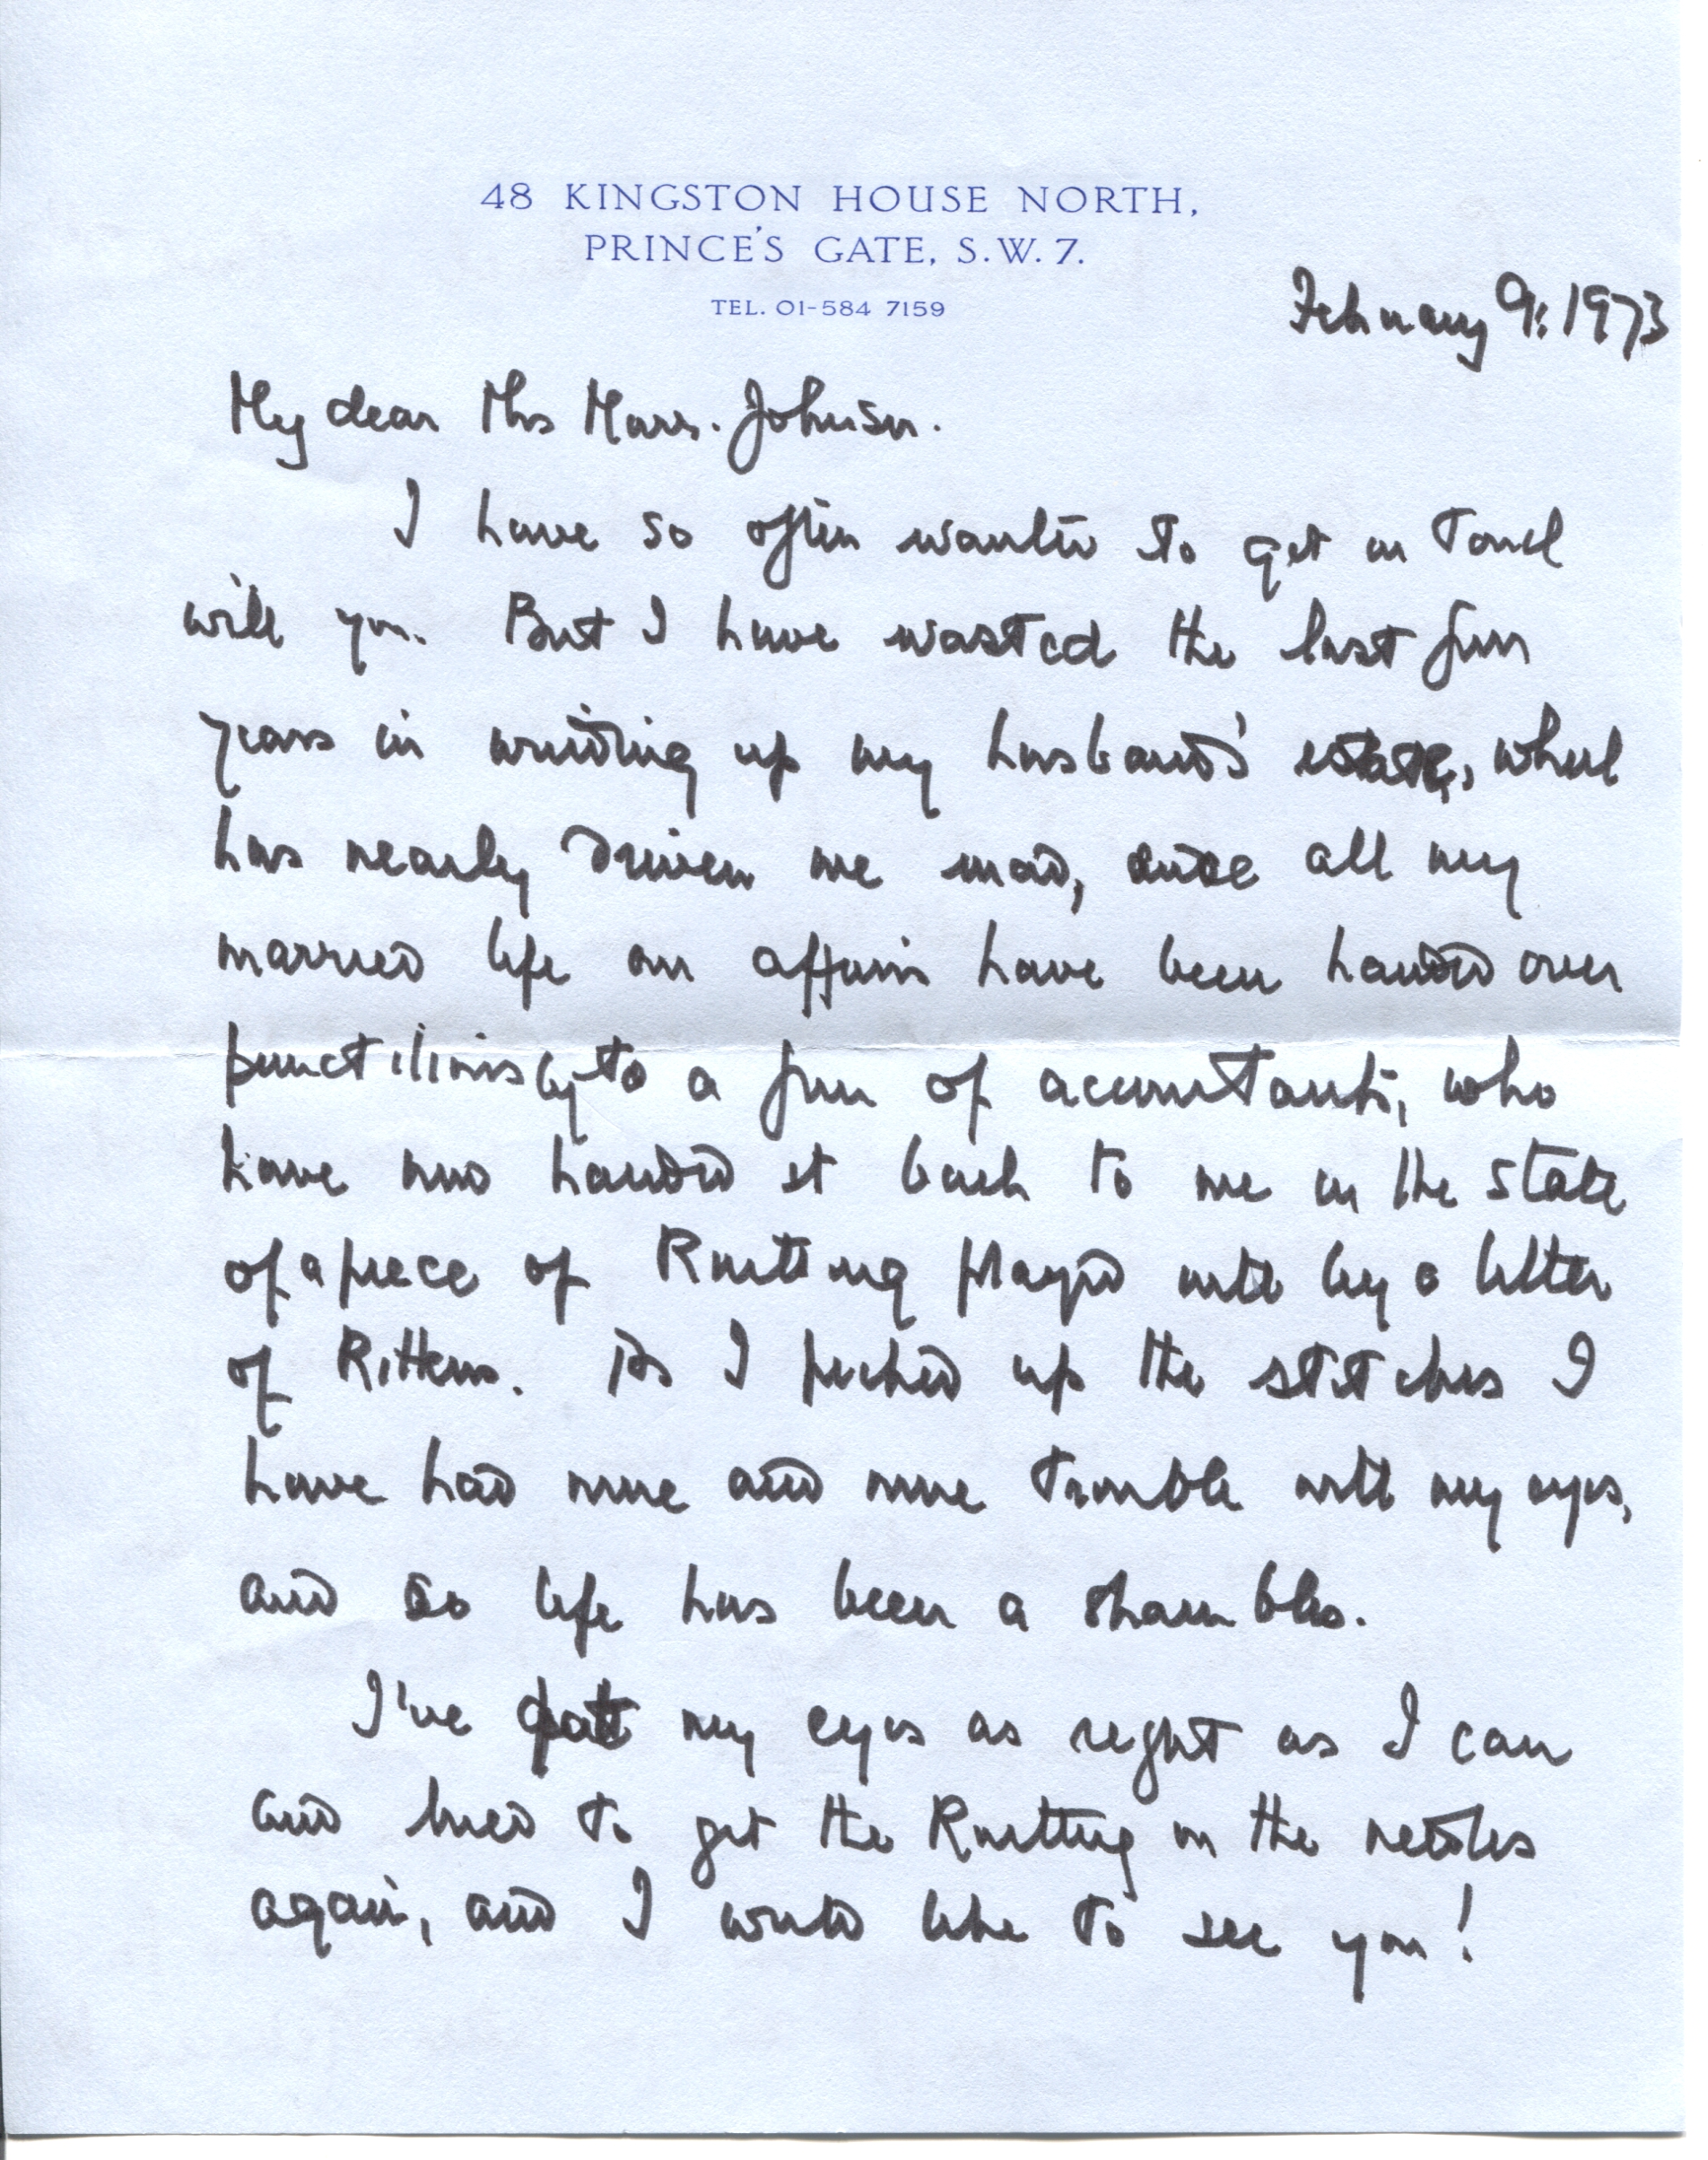 48 KINGSTON HOUSE NORTH,
PRINCE'S GATE, S.W.7.
TEL. 01-584 7159
February 9: 1973
My dear Mrs Johnson.
I have so often wanted to get in touch
with you. But I have wasted the last four
years in winding up my husband's estate, which
has nearly driven me mad, since all my
married life our affairs have been handed over
punctiliously to a firm of accountants, who
have now handed it back to me in the state
of a piece of Knitting played with by a litter
of Kittens. As I picked up the stitches I
have had more and more trouble with my eyes,
and so life has been a shambles.
I've my eyes as right as I can
and tried to get the Knitting on the needles
again, and I would like to see you!